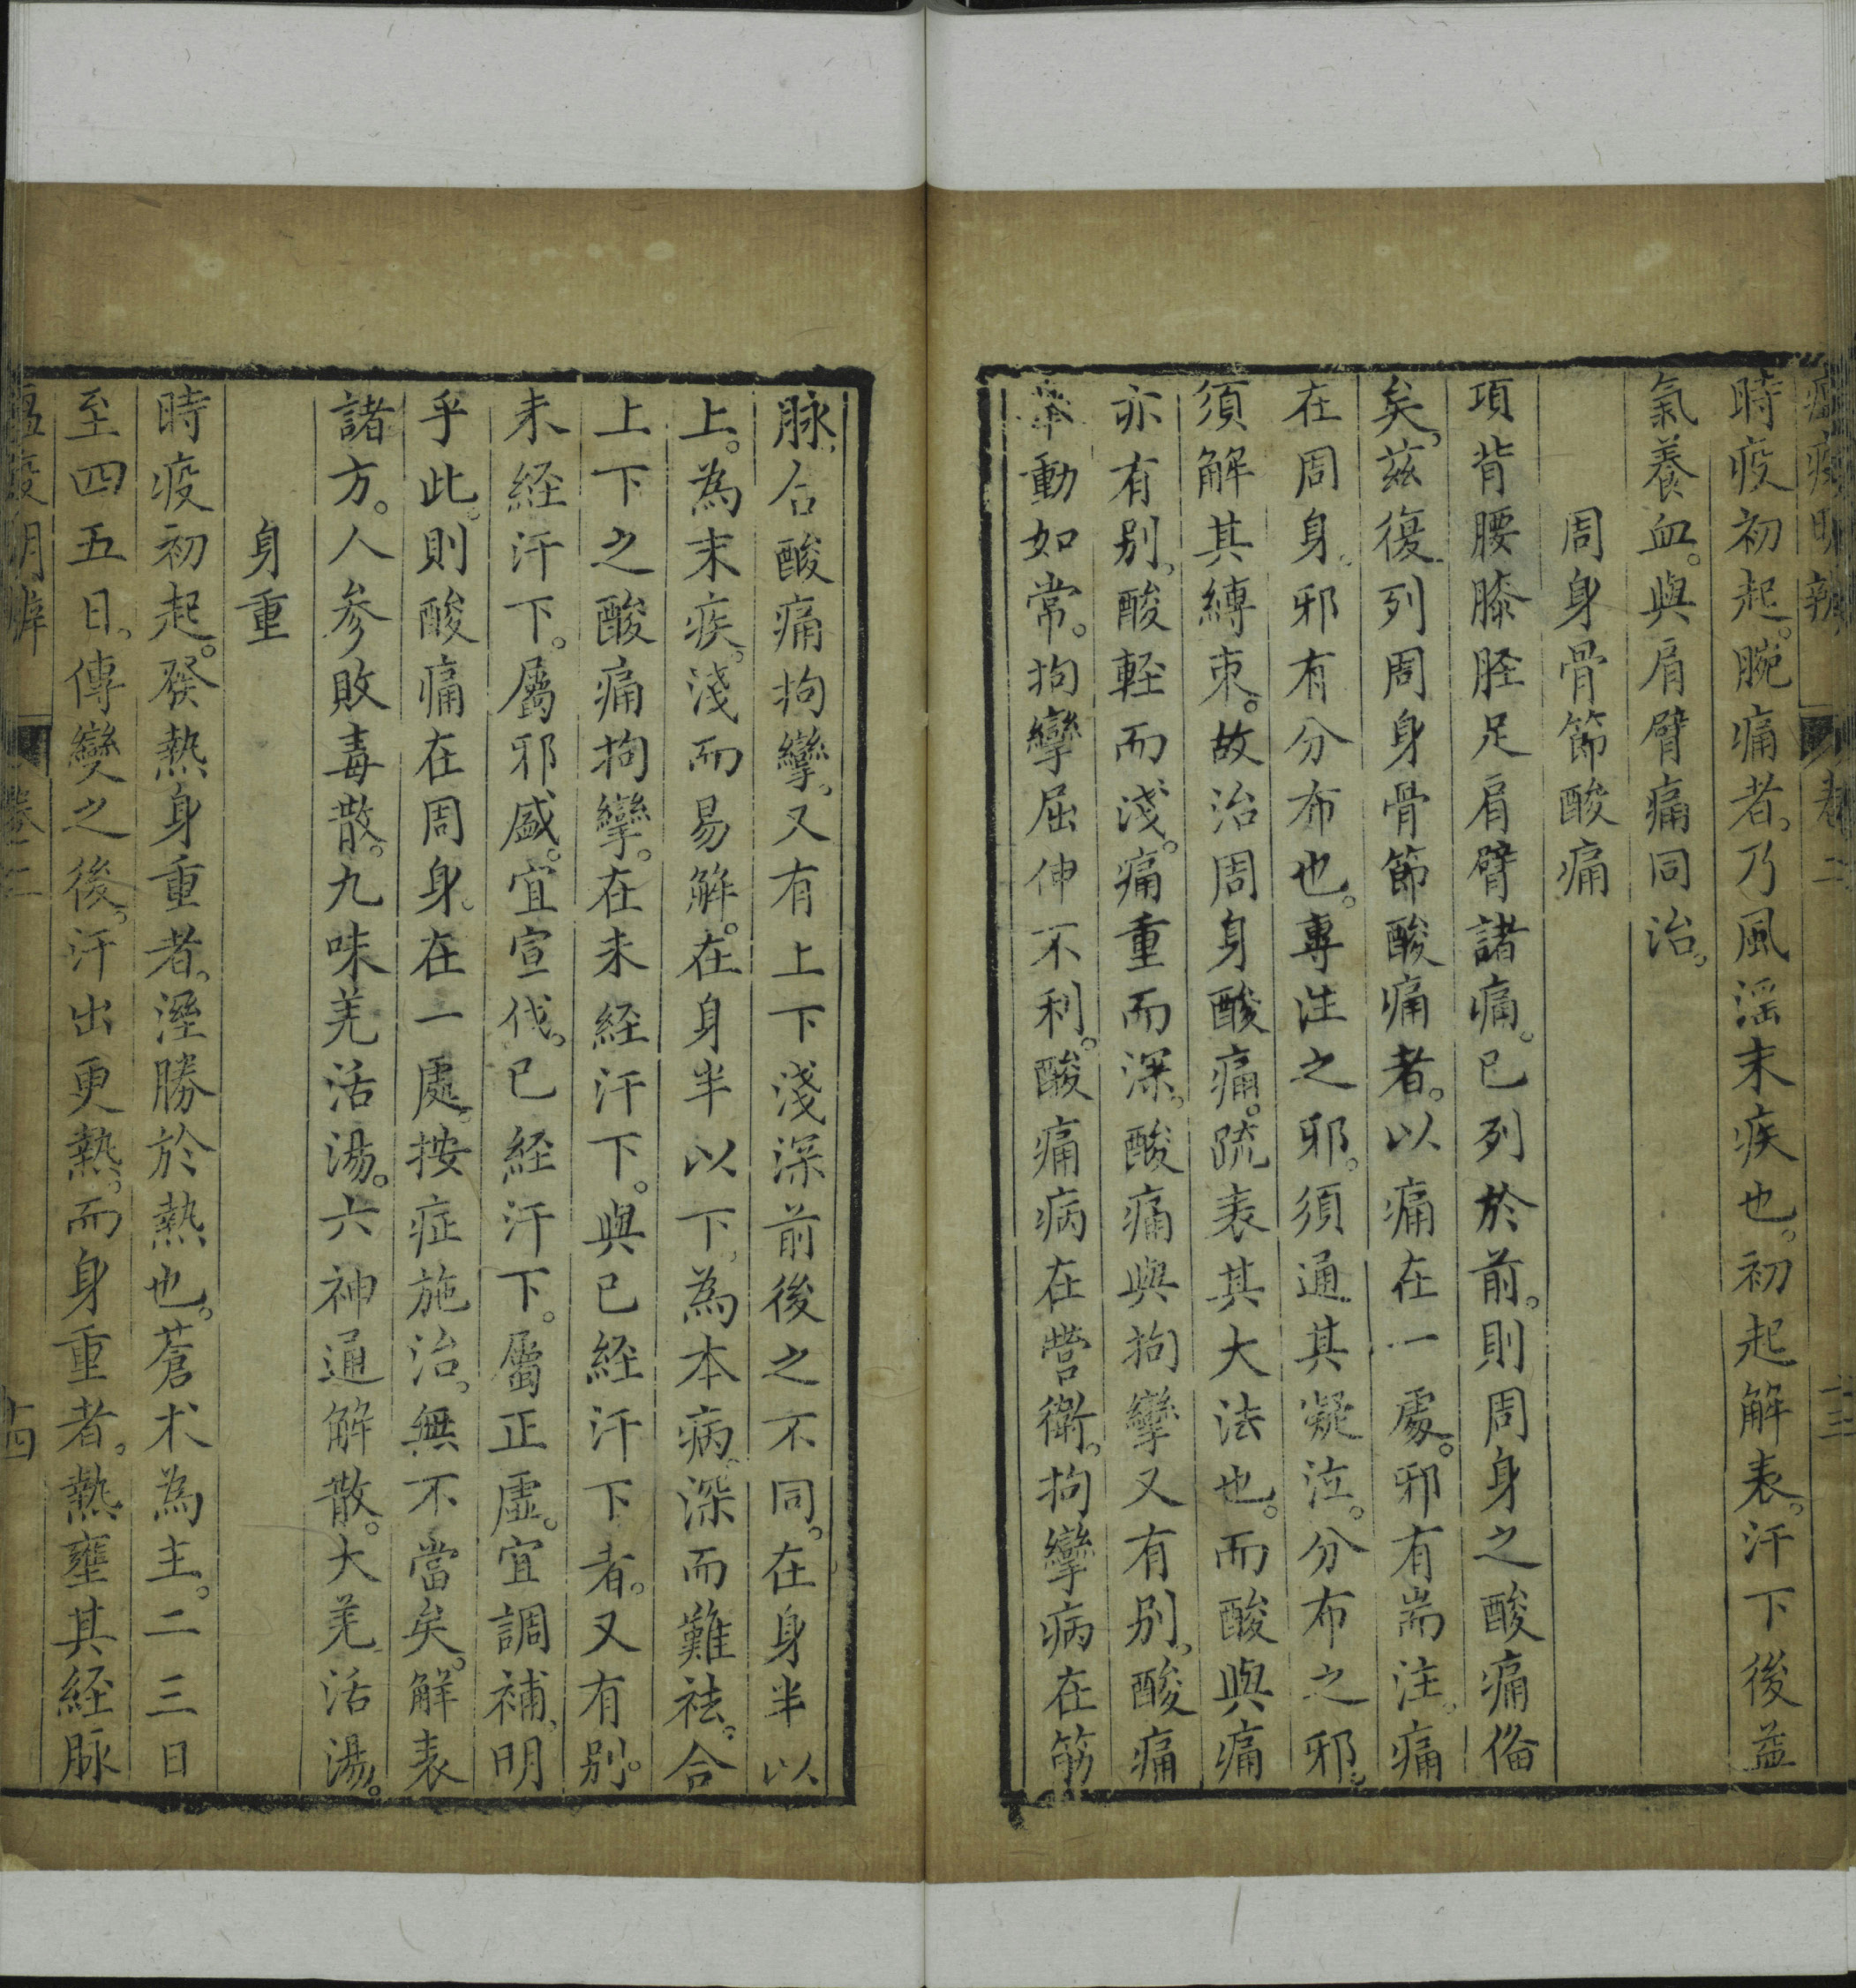 時疫初起。腕痛者。乃風滛末疾也。初起解表。汗下後益
氣養血。與肩臂痛同治。
周身骨節酸痛
項背腰膝脛足肩臂諸痛。已列於前。則周身之酸痛俻
矣。茲復列周身骨節酸痛者。以痛在一處。邪有耑注。痛
在周身。邪有分布也。專注之邪。須通其凝泣。分布之邪。
須解其縛束。故治周身酸痛。疏表其大法也。而酸與痛
亦有别。酸輕而淺。痛重而深。酸痛與拘攣又有别。酸痛
舉動如常。拘攣屈伸不利。酸痛病在營衛。拘攣病在筋
脉。合酸痛拘攣。又有上下淺深前後之不同。在身半以
上。為末疾。淺而易觧。在身半以下。為本病。深而難袪。合
上下之酸痛拘攣。在未經汗下。與已經汗下者。又有别。
未經汗下。屬邪盛。宜宣伐。已經汗下。屬正虛。宜調補。明
乎此。則酸痛在周身。在一處。按症施治。無不當矣。解表
諸方。人參敗毒散。九味羌活湯。六神通解散。大羌活湯。
身重
時疫初起。發熱身重者。溼勝於熱也。蒼术為主。二三日
至四五日。傳變之後。汗出更熱。而身重者。熱壅其經脉
瘟疫明辨 卷二 十四